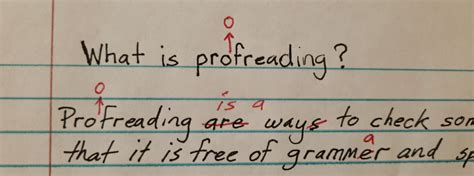 o
What is profreading?
o
is a
Profreading are ways to check som
a
that it is free of grammer and sp